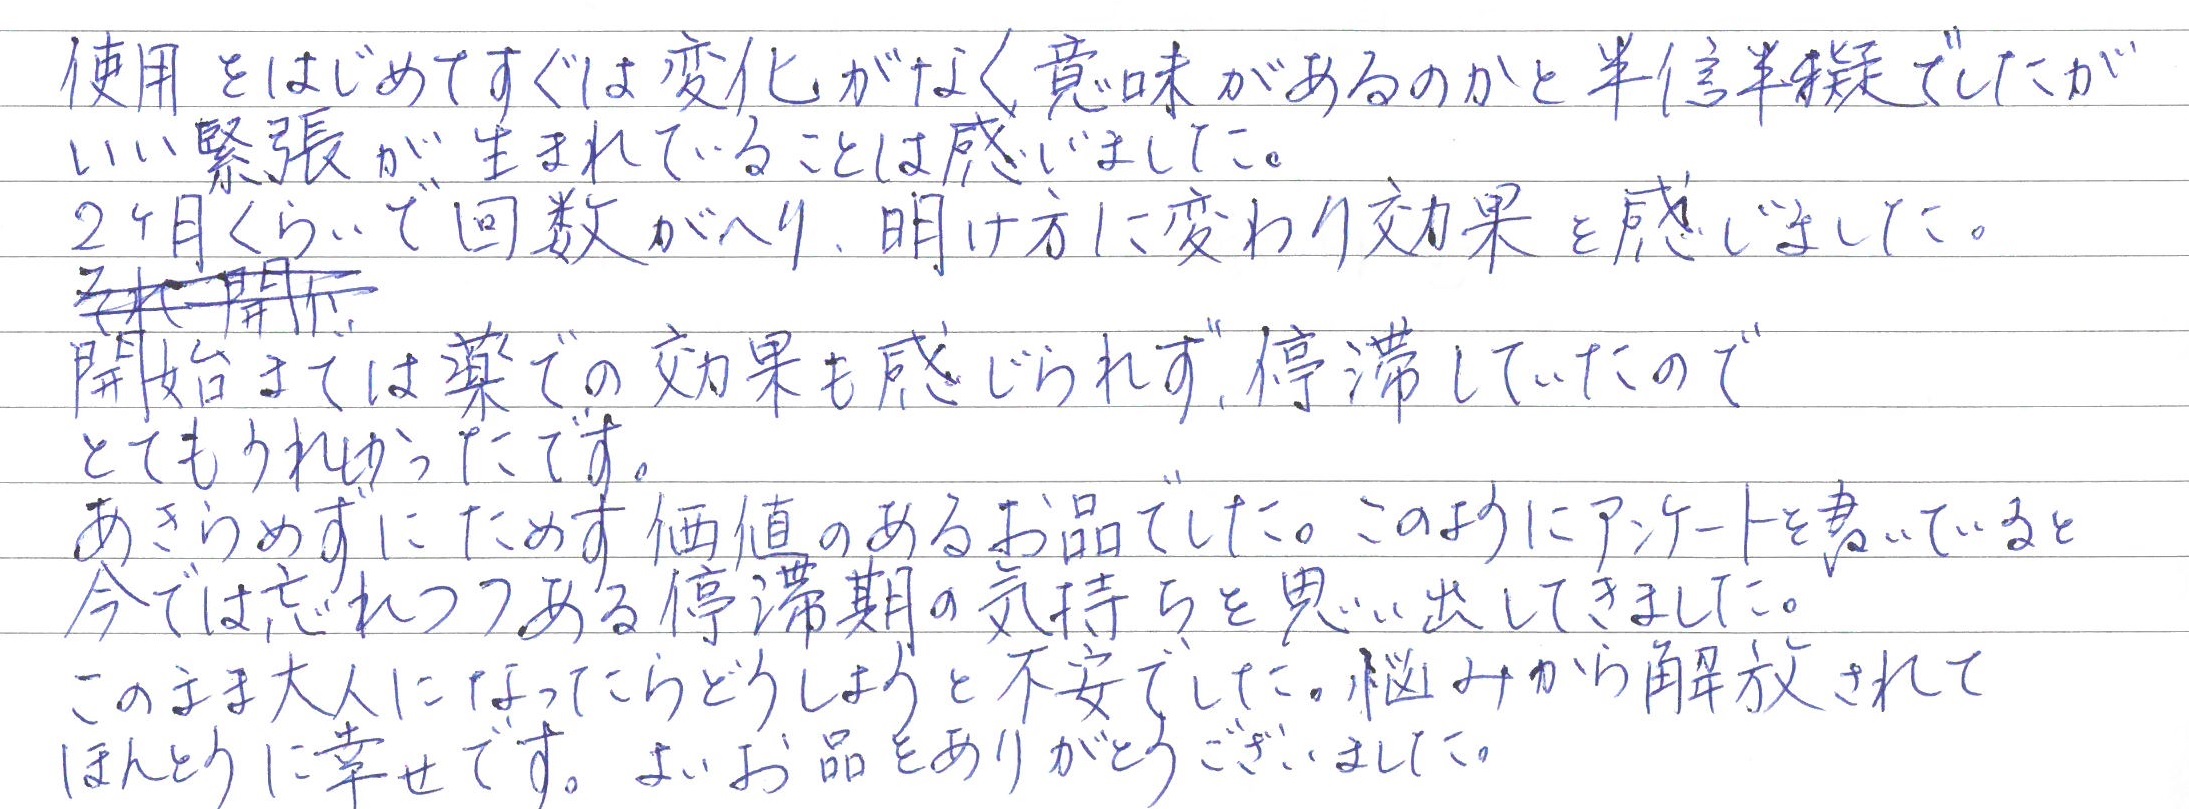 使用をはじめてすぐは変化がなく意味があるのかと半信半擬でしたが
いい緊張が生まれていることは感じました。
2ヶ月くらいで回数がへり、明け方に変わり効果を感じました。
それ 開
開始までは薬での効果も感じられず、停滞していたので
とてもうれしかったです。
あきらめずにためす価値のあるお品でした。このようにアンケートを書いていると
今では忘れつつある停滞期の気持ちを思い出してきました。
このまま大人になったらどうしようと不安でした。悩みから解放されて
ほんとうに幸せです。よいお品をありがとうございました。